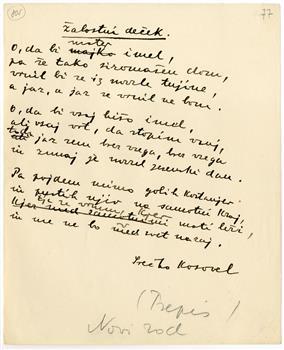 801
77
Žalostni deček.
mater
O, da bi majko imel,
pa če tako siromašen dom,
vrnil bi se iz mrzle tujine!
a jaz, a jaz se vrnil ne bom.
O, da bi vsaj hišo imel,
ali vsaj vrt, da stopim vanj,
jaz sem brez vsega, brez vsega
in zunaj je mrzel zimski dan.
Pa pojdem mimo golih kostanjev
in pustih njiv na samotni kraj,
kjer mati leži,
in me ne bo več svet nazaj.
Srečko Kosovel
(Prepis)
Novi rod